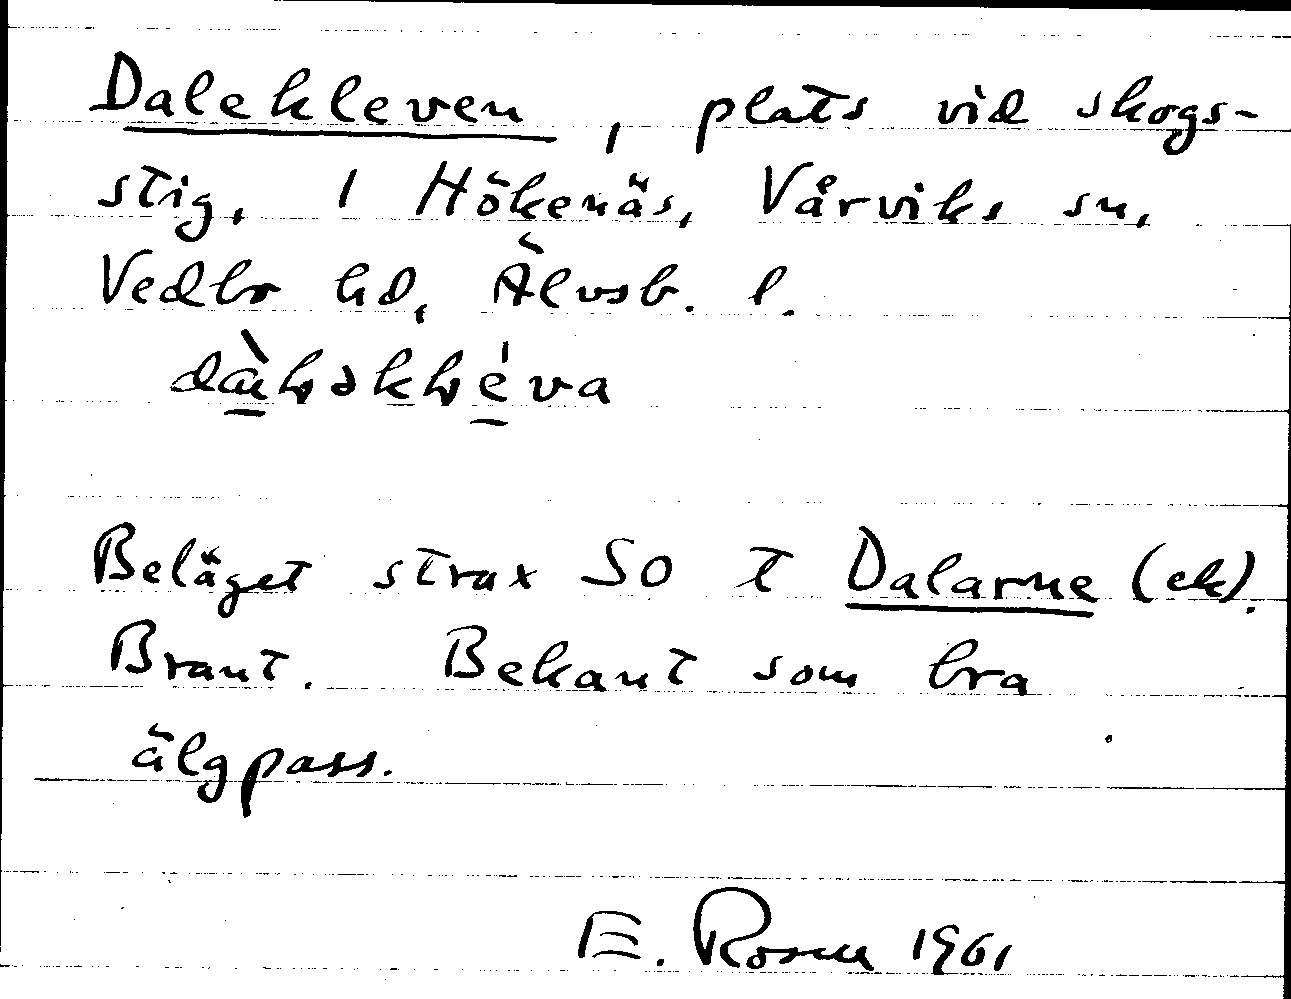 Dalekleven, plats vid skogs-
stig, 1 Hökenäs, Vårviks sn,
Vedbo hd, Älvsb. l.
Beläget strax SO t Dalarne (ek).
Brant. Bekant som bra
älgpass.
E. Rosen 1961